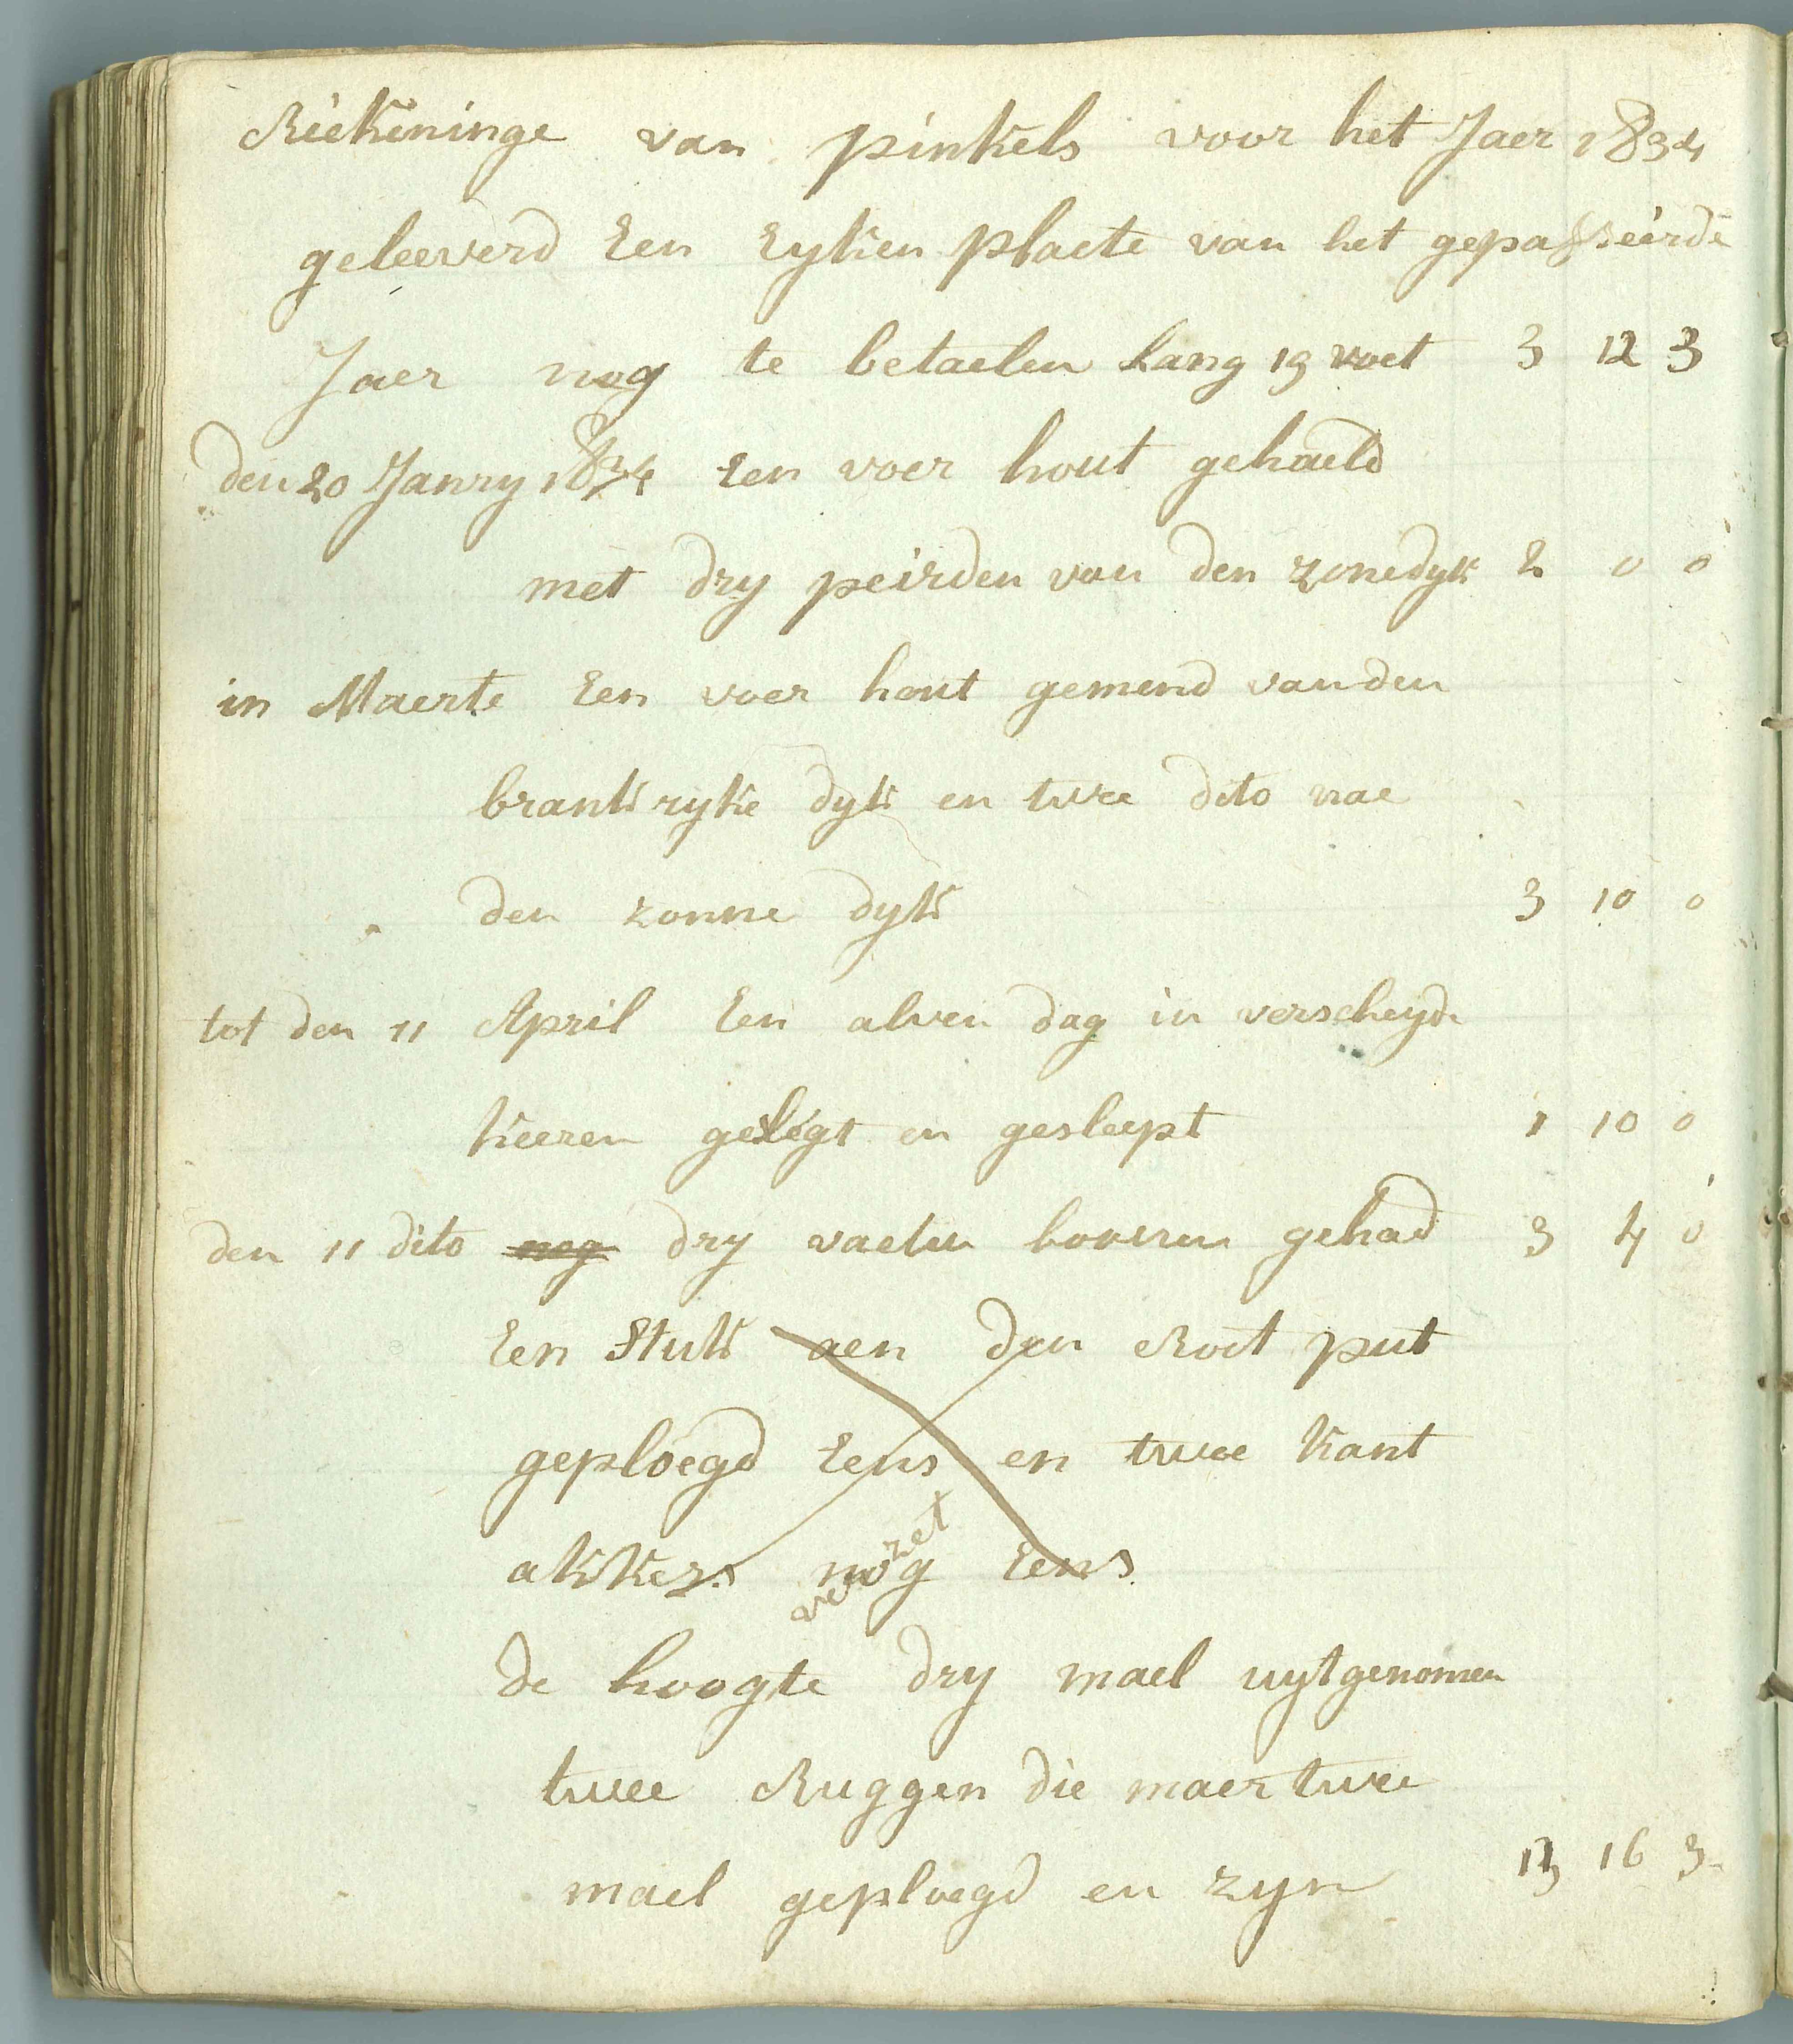 Riekeninge van pinkels voor het Jaer 1834
geleeverd Een Eyken plaete van het gepasseirde
Jaer nog te betaelen Lang 19 voet 3 12 3
den 20 Janry 1834 Een voer hout gehaeld
met dry peirden van den zonedyk 2 0 0
in Maerte Een voer hout gemend vanden
brank ryke dyk en twee dito nae
den zonne dyk 3 10 0
tot den 11 April Een alven dag in verscheyde
Keeren gelegt en gesleept 1 10 0
den 11 dito nog dry vaeten boonen gehad 3 4 0
Een Stuk aen den Root put
geploegd Eens en twee Kant
akkers nog Eens
verzet
de hoogte dry mael uytgenomen
twee Ruggen die maer twee
mael geploegd en zyn 13 16 3